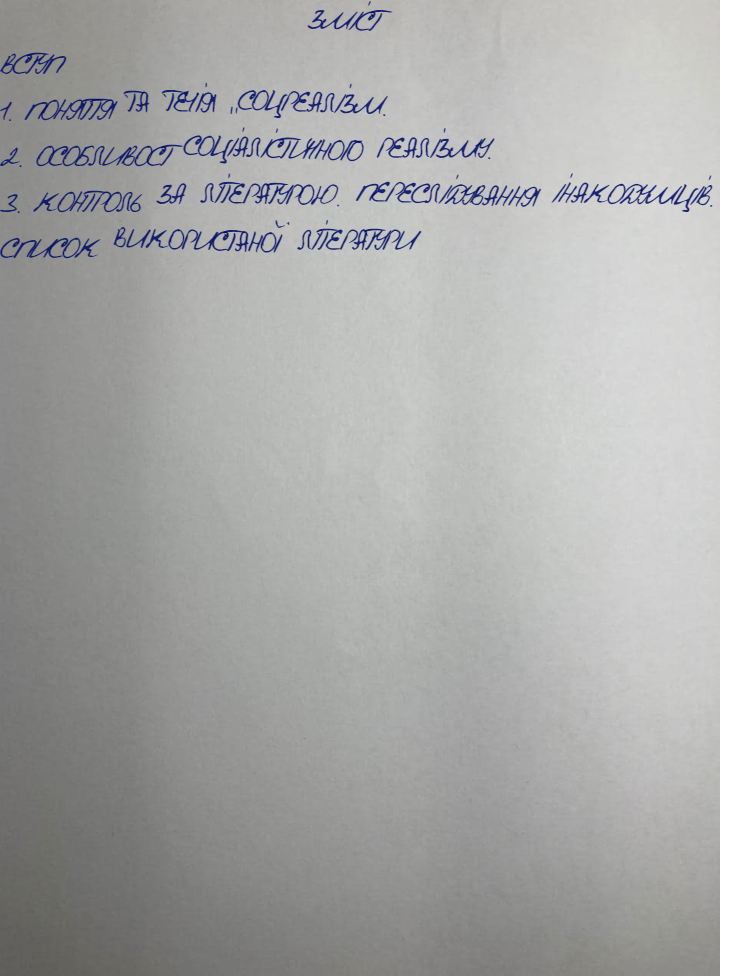 ЗМІСТ
ВСТУП
1. ПОНЯТТЯ ТА ТЕЧІЯ „СОЦРЕАЛІЗМ.
2. ОСОБЛИВОСТ СОЦІАЛІСТИЧНОГО РЕАЛІЗМУ.
3. КОНТРОЛЬ ЗА ЛІТЕРАТУРОЮ. ПЕРЕСЛІДУВАННЯ ІНАКОДУМЦІВ.
СПИСОК ВИКОРИСТАНОЇ ЛІТЕРАТУРИ